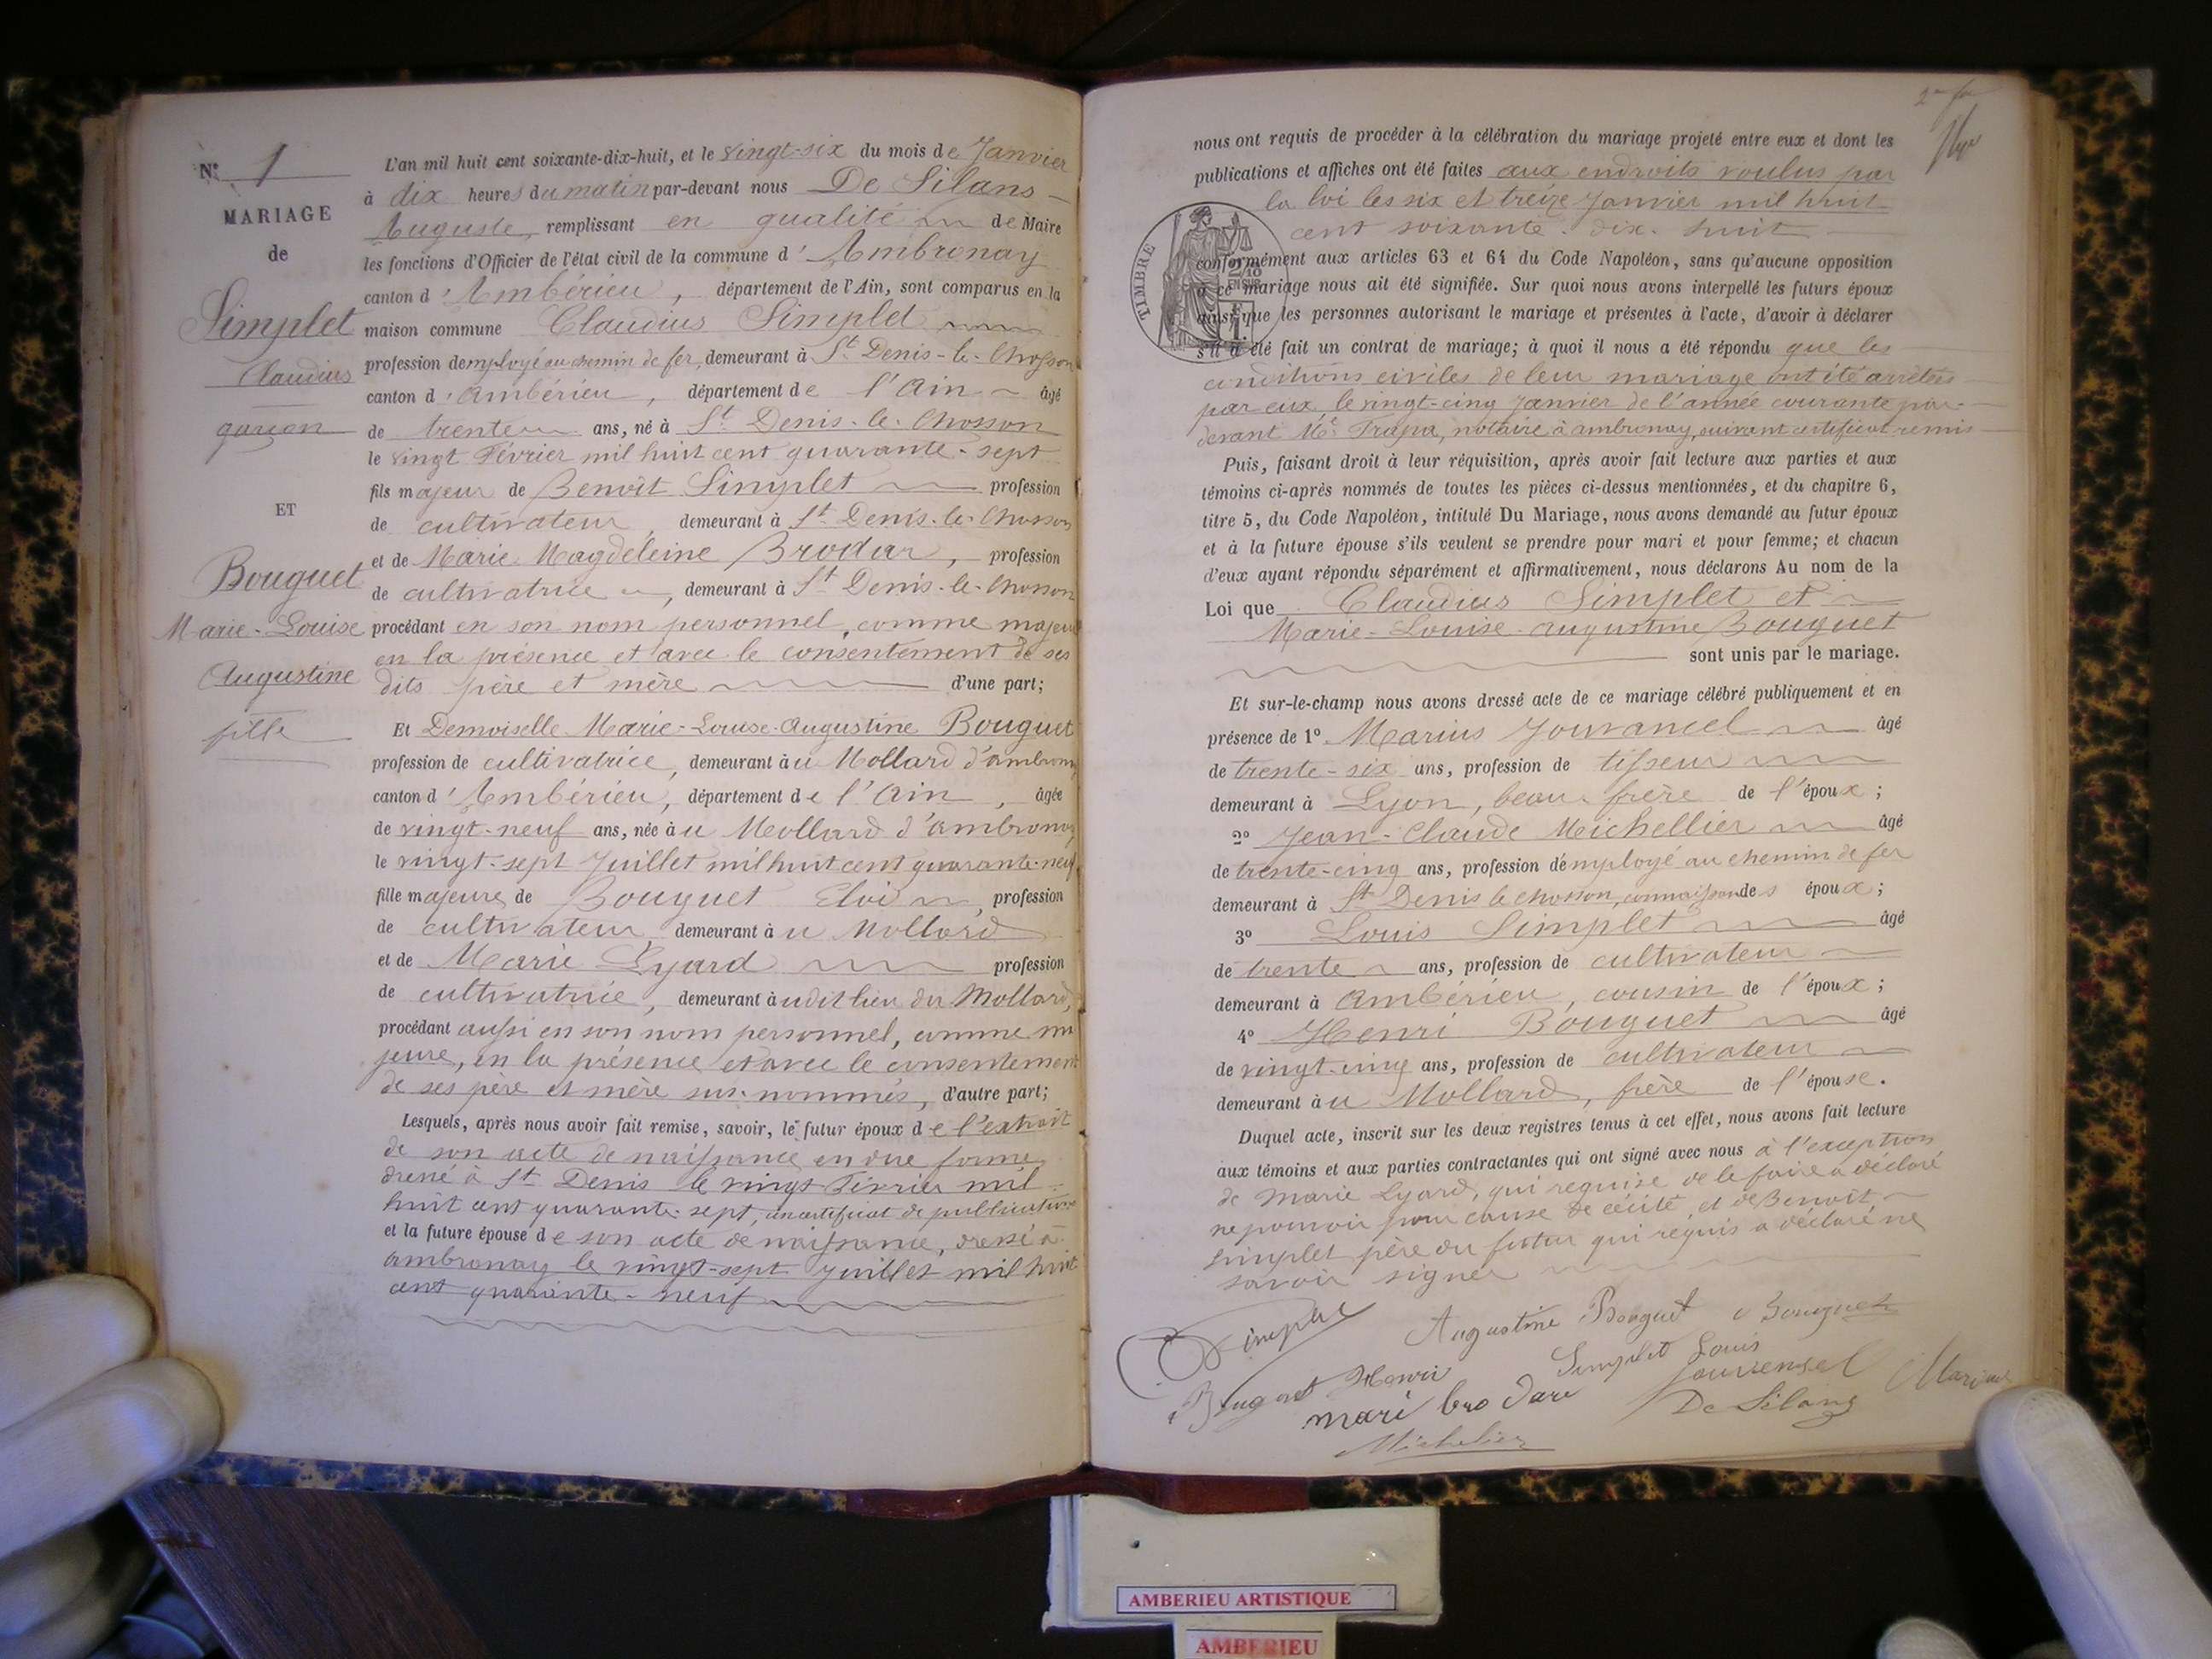 N° 1
MARIAGE
de
Simplet
Claudius
garçon
ET
Bouguet
Marie-Louise
Augustine
fille
L'an mil huit cent soixante-dix-huit, et le vingt-six du mois de Janvier
à dix heures du matin par-devant nous De Silans
Auguste, remplissant en qualité de Maire
les fonctions d'Officier de l'état civil de la commune d'Ambronay
canton d'Ambérieu, département de l'Ain, sont comparus en la
maison commune Claudius Simplet
profession d'employé au chemin de fer, demeurant à St Denis-le-Chosson
canton d'Ambérieu, département de l'Ain âgé
de trente ans, né à St Denis-le-Chosson
le vingt Février mil huit cent quarante-sept
fils majeur de Benoît Simplet profession
de cultivateur, demeurant à St Denis-le-Chosson
et de Marie Magdeleine Brodar, profession
de cultivatrice, demeurant à St Denis-le-Chosson
procédant en son nom personnel, comme majeur
en la présence et avec le consentement de ses
dits père et mère d'une part;
Et Demoiselle Marie-Louise-Augustine Bouguet
profession de cultivatrice, demeurant au Mollard d'ambronay
canton d'Ambérieu, département de l'Ain, âgée
de vingt-neuf ans, née au Mollard d'ambronay
le vingt-sept Juillet mil huit cent quarante-neuf
fille majeure de Bouguet Eloi, profession
de cultivateur, demeurant au Mollard
et de Marie Lyard profession
de cultivatrice, demeurant audit lieu du Mollard,
procédant aussi en son nom personnel, comme ma
jeure, en la présence et avec le consentement
de ses père et mère sus-nommés, d'autre part;
Lesquels, après nous avoir fait remise, savoir, le futur époux de l'extrait
de son acte de naissance en due forme
dressé à St Denis le vingt Février mil
huit cent quarante-sept, un certificat de publication
et la future épouse de son acte de naissance, dressé à
ambronay le vingt-sept Juillet mil huit
cent quarante-neuf
nous ont requis de procéder à la célébration du mariage projeté entre eux et dont les
publications et affiches ont été faites aux endroits voulus par
la loi les six et treize Janvier mil huit
cent soixante-dix-huit
TIMBRE
2/10
EN SUS
conformément aux articles 63 et 64 du Code Napoléon, sans qu'aucune opposition
à ce mariage nous ait été signifiée. Sur quoi nous avons interpellé les futurs époux
ainsi que les personnes autorisant le mariage et présentes à l'acte, d'avoir à déclarer
s'il a été fait un contrat de mariage; à quoi il nous a été répondu que les
conditions civiles de leur mariage ont été arrêtées
par eux, le vingt-cinq Janvier de l'année courante par-
devant Me Trapa, notaire à ambronay, suivant certificat remis
Puis, faisant droit à leur réquisition, après avoir fait lecture aux parties et aux
témoins ci-après nommés de toutes les pièces ci-dessus mentionnées, et du chapitre 6,
titre 5, du Code Napoléon, intitulé Du Mariage, nous avons demandé au futur époux
et à la future épouse s'ils veulent se prendre pour mari et pour femme; et chacun
d'eux ayant répondu séparément et affirmativement, nous déclarons Au nom de la
Loi que Claudius Simplet et
Marie-Louise-augustine Bouguet
sont unis par le mariage.
Et sur-le-champ nous avons dressé acte de ce mariage célébré publiquement et en
présence de 1° Marius Jouvancel âgé
de trente-six ans, profession de tisseur
demeurant à Lyon, beau-frère de l'époux;
2° Jean-Claude Michellier âgé
de trente-cinq ans, profession d'employé au chemin de fer
demeurant à St Denis le chosson, connaissance des époux;
3° Louis Simplet âgé
de trente ans, profession de cultivateur
demeurant à Ambérieu, cousin de l'époux;
4° Henri Bouguet âgé
de vingt-cinq ans, profession de cultivateur
demeurant au Mollard, frère de l'épouse.
Duquel acte, inscrit sur les deux registres tenus à cet effet, nous avons fait lecture
aux témoins et aux parties contractantes qui ont signé avec nous à l'exception
de Marie Lyard, qui requise de le faire a déclaré
ne pouvoir pour cause de cécité, et de Benoît
Simplet père du futur qui requis a déclaré ne
savoir signer
Simplet
Augustine Bouguet
Bouguet
Bouguet Henri
Simplet Louis
Jouvensel Marius
mari bro dare
De Silans
Michelier
AMBERIEU ARTISTIQUE
AMBERIEU